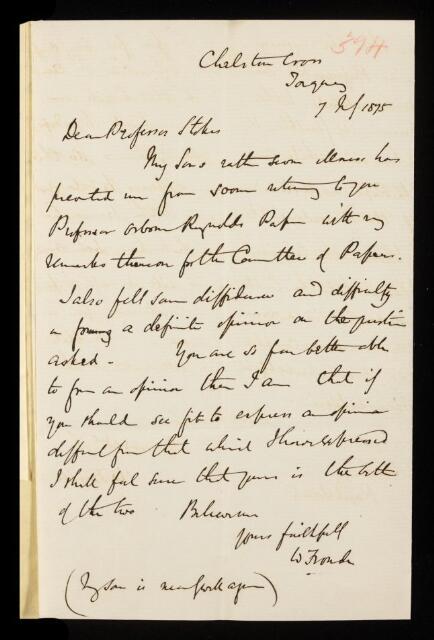 394
Chelston Cross
Torquay
7 July 1875
Dear Professor Stokes
My Son's rather severe illness has
prevented me from sooner returning to you
Professor Osborne Reynolds Paper with my
remarks thereon for the Committee of Papers.
I also felt some diffidence and difficulty
in forming a definite opinion on the question
asked - You are so far better able
to form an opinion than I am that if
you should see fit to express an opinion
different from that which I have expressed
I shall feel sure that yours is the better
of the two Believe me
yours faithfully
W Froude
(My son is now well again)